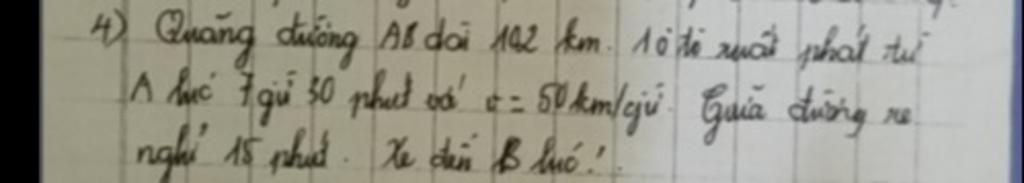 4) Quãng đường AB dài 102 km. 1 ô tô xuất phát từ
A lúc 7 giờ 30 phút với v = 50 km/giờ. Giữa đường xe
nghỉ 15 phút. Xe đến B lúc!